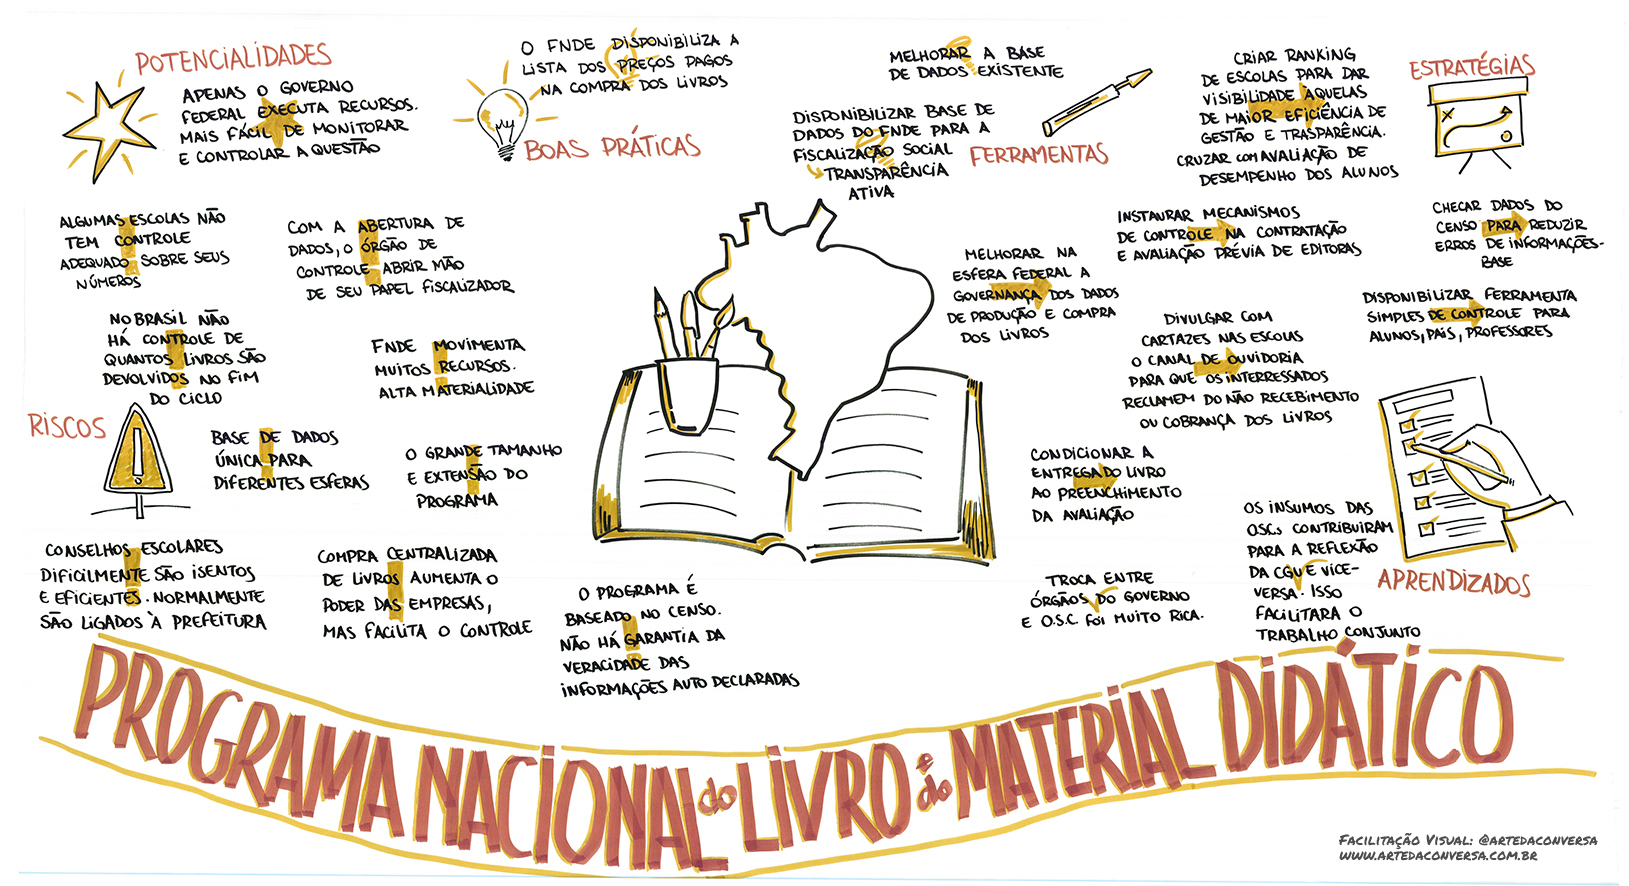 POTENCIALIDADES
APENAS O GOVERNO
FEDERAL EXECUTA RECURSOS.
MAIS FÁCIL DE MONITORAR
E CONTROLAR A QUESTÃO
O FNDE DISPONIBILIZA A
LISTA DOS PREÇOS PAGOS
NA COMPRA DOS LIVROS
BOAS PRÁTICAS
MELHORAR A BASE
DE DADOS EXISTENTE
DISPONIBILIZAR BASE DE
DADOS DO FNDE PARA A
FISCALIZAÇÃO SOCIAL
TRANSPARÊNCIA
ATIVA
FERRAMENTAS
CRIAR RANKING
DE ESCOLAS PARA DAR
VISIBILIDADE ÀQUELAS
DE MAIOR EFICIÊNCIA DE
GESTÃO E TRASPARÊNCIA.
CRUZAR COM AVALIAÇÃO DE
DESEMPENHO DOS ALUNOS
ESTRATÉGIAS
ALGUMAS ESCOLAS NÃO
TEM CONTROLE
ADEQUADO SOBRE SEUS
NÚMEROS
COM A ABERTURA DE
DADOS, O ÓRGÃO DE
CONTROLE ABRIR MÃO
DE SEU PAPEL FISCALIZADOR
NO BRASIL NÃO
HÁ CONTROLE DE
QUANTOS LIVROS SÃO
DEVOLVIDOS NO FIM
DO CICLO
FNDE MOVIMENTA
MUITOS RECURSOS.
ALTA MATERIALIDADE
RISCOS
BASE DE DADOS
ÚNICA PARA
DIFERENTES ESFERAS
O GRANDE TAMANHO
E EXTENSÃO DO
PROGRAMA
CONSELHOS ESCOLARES
DIFICILMENTE SÃO ISENTOS
E EFICIENTES. NORMALMENTE
SÃO LIGADOS À PREFEITURA
COMPRA CENTRALIZADA
DE LIVROS AUMENTA O
PODER DAS EMPRESAS,
MAS FACILITA O CONTROLE
O PROGRAMA É
BASEADO NO CENSO.
NÃO HÁ GARANTIA DA
VERACIDADE DAS
INFORMAÇÕES AUTO DECLARADAS
INSTAURAR MECANISMOS
DE CONTROLE NA CONTRATAÇÃO
E AVALIAÇÃO PRÉVIA DE EDITORAS
CHECAR DADOS DO
CENSO PARA REDUZIR
ERROS DE INFORMAÇÕES-
BASE
MELHORAR NA
ESFERA FEDERAL A
GOVERNANÇA DOS DADOS
DE PRODUÇÃO E COMPRA
DOS LIVROS
DISPONIBILIZAR FERRAMENTA
SIMPLES DE CONTROLE PARA
ALUNOS, PAIS, PROFESSORES
DIVULGAR COM
CARTAZES NAS ESCOLAS
O CANAL DE OUVIDORIA
PARA QUE OS INTERRESSADOS
RECLAMEM DO NÃO RECEBIMENTO
OU COBRANÇA DOS LIVROS
CONDICIONAR A
ENTREGA DO LIVRO
AO PREENCHIMENTO
DA AVALIAÇÃO
TROCA ENTRE
ÓRGÃOS DO GOVERNO
E O.S.C. FOI MUITO RICA.
OS INSUMOS DAS
OSCs CONTRIBUIRAM
PARA A REFLEXÃO
DA CGU E VICE-
VERSA. ISSO
FACILITARA O
TRABALHO CONJUNTO
APRENDIZADOS
PROGRAMA NACIONAL do LIVRO e do MATERIAL DIDÁTICO
FACILITAÇÃO VISUAL: @ARTEDACONVERSA
WWW.ARTEDACONVERSA.COM.BR